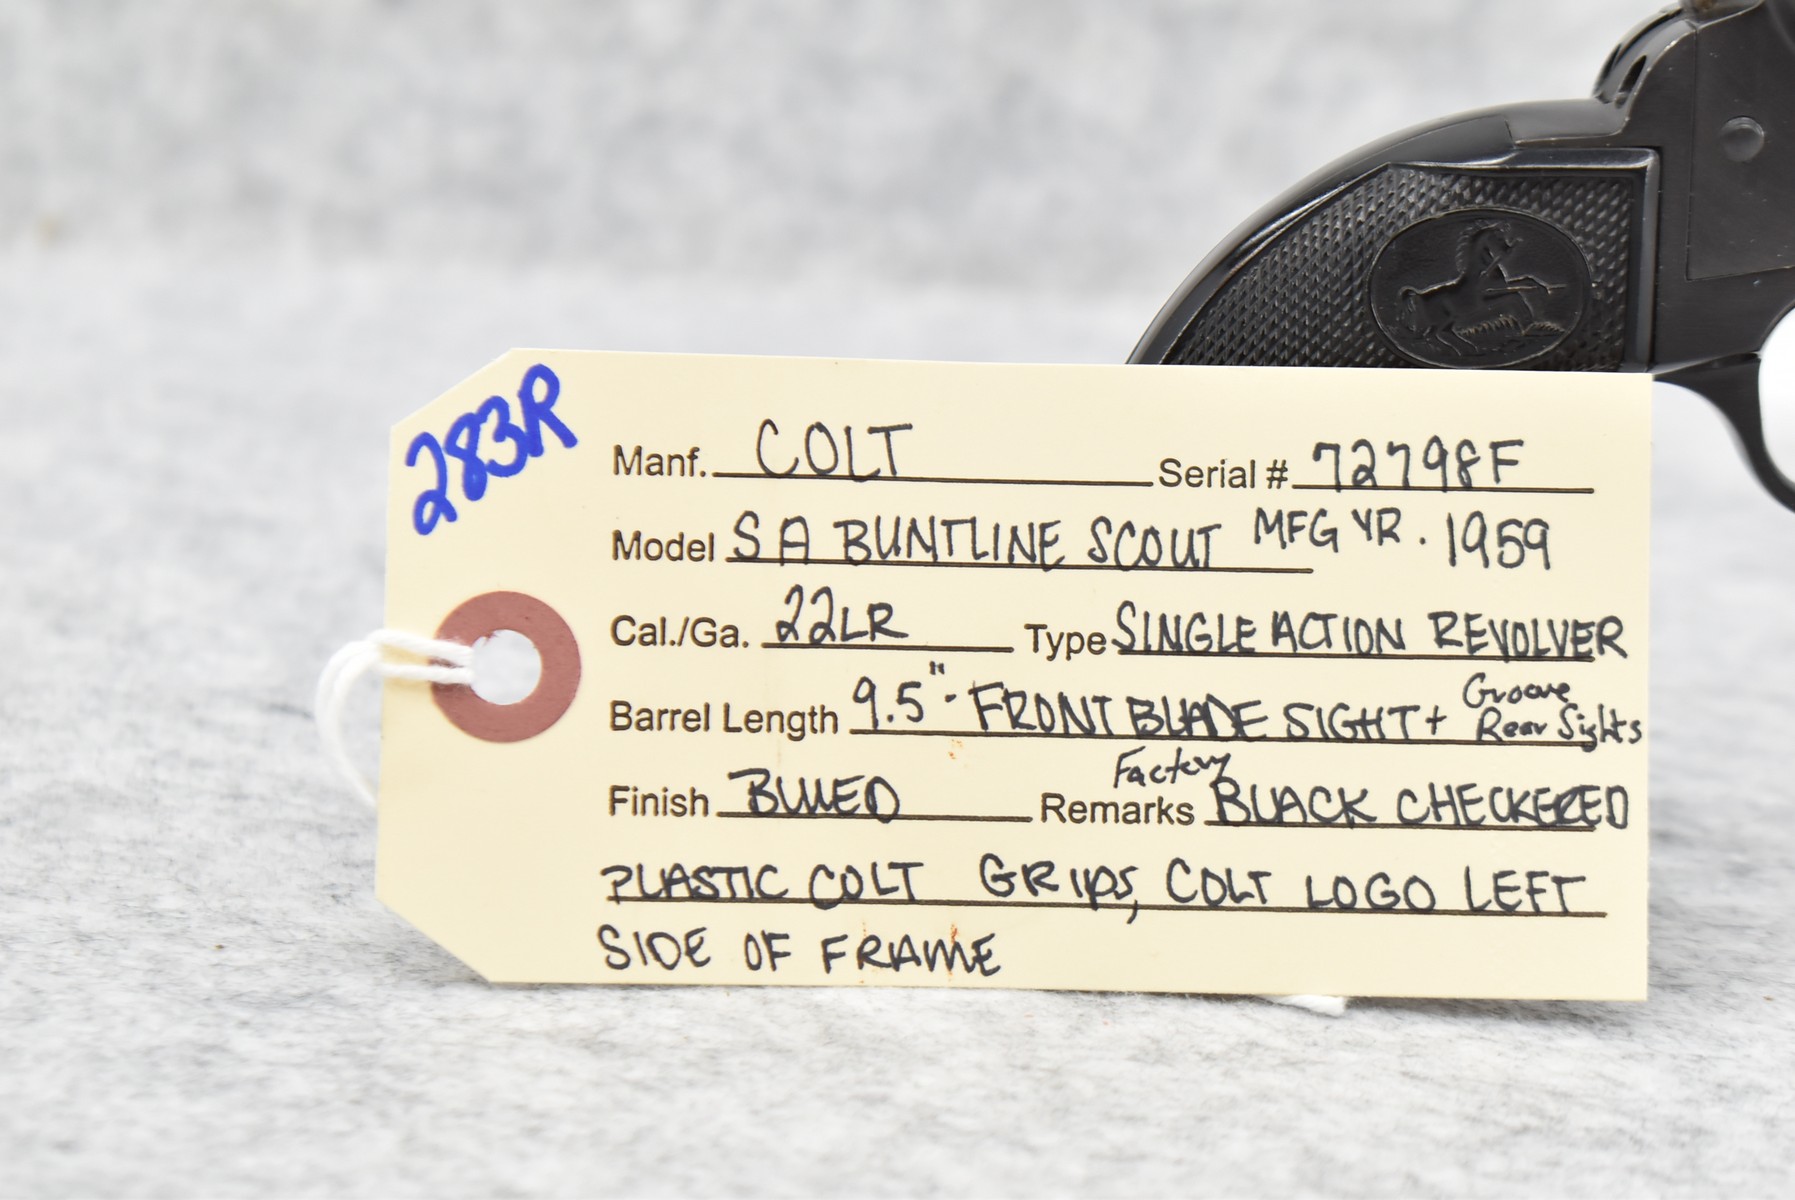 283R
Manf. COLT Serial # 72798F
Model SA BUNTLINE SCOUT MFG YR. 1959
Cal./Ga. 22LR Type SINGLE ACTION REVOLVER
Barrel Length 9.5" - FRONT BLADE SIGHT + Groove Rear Sights
Finish BLUED Remarks Factory BLACK CHECKERED
PLASTIC COLT GRIPS, COLT LOGO LEFT
SIDE OF FRAME